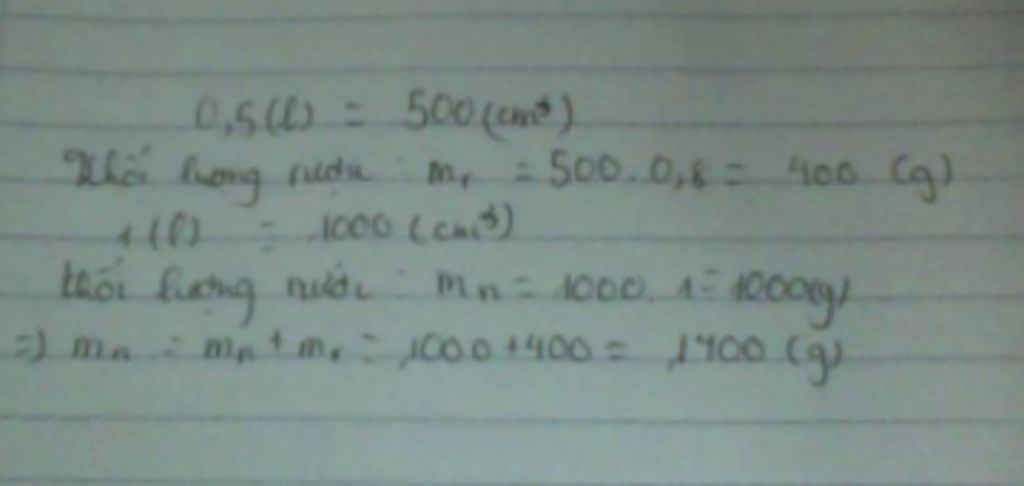 0,5(l) = 500 (cm³)
Khối lượng rượu : mr = 500 . 0,8 = 400 (g)
1 (l) = 1000 (cm³)
khối lượng nước : mn = 1000 . 1 = 1000(g)
=) mn = mn + mr = 1000 + 400 = 1400 (g)